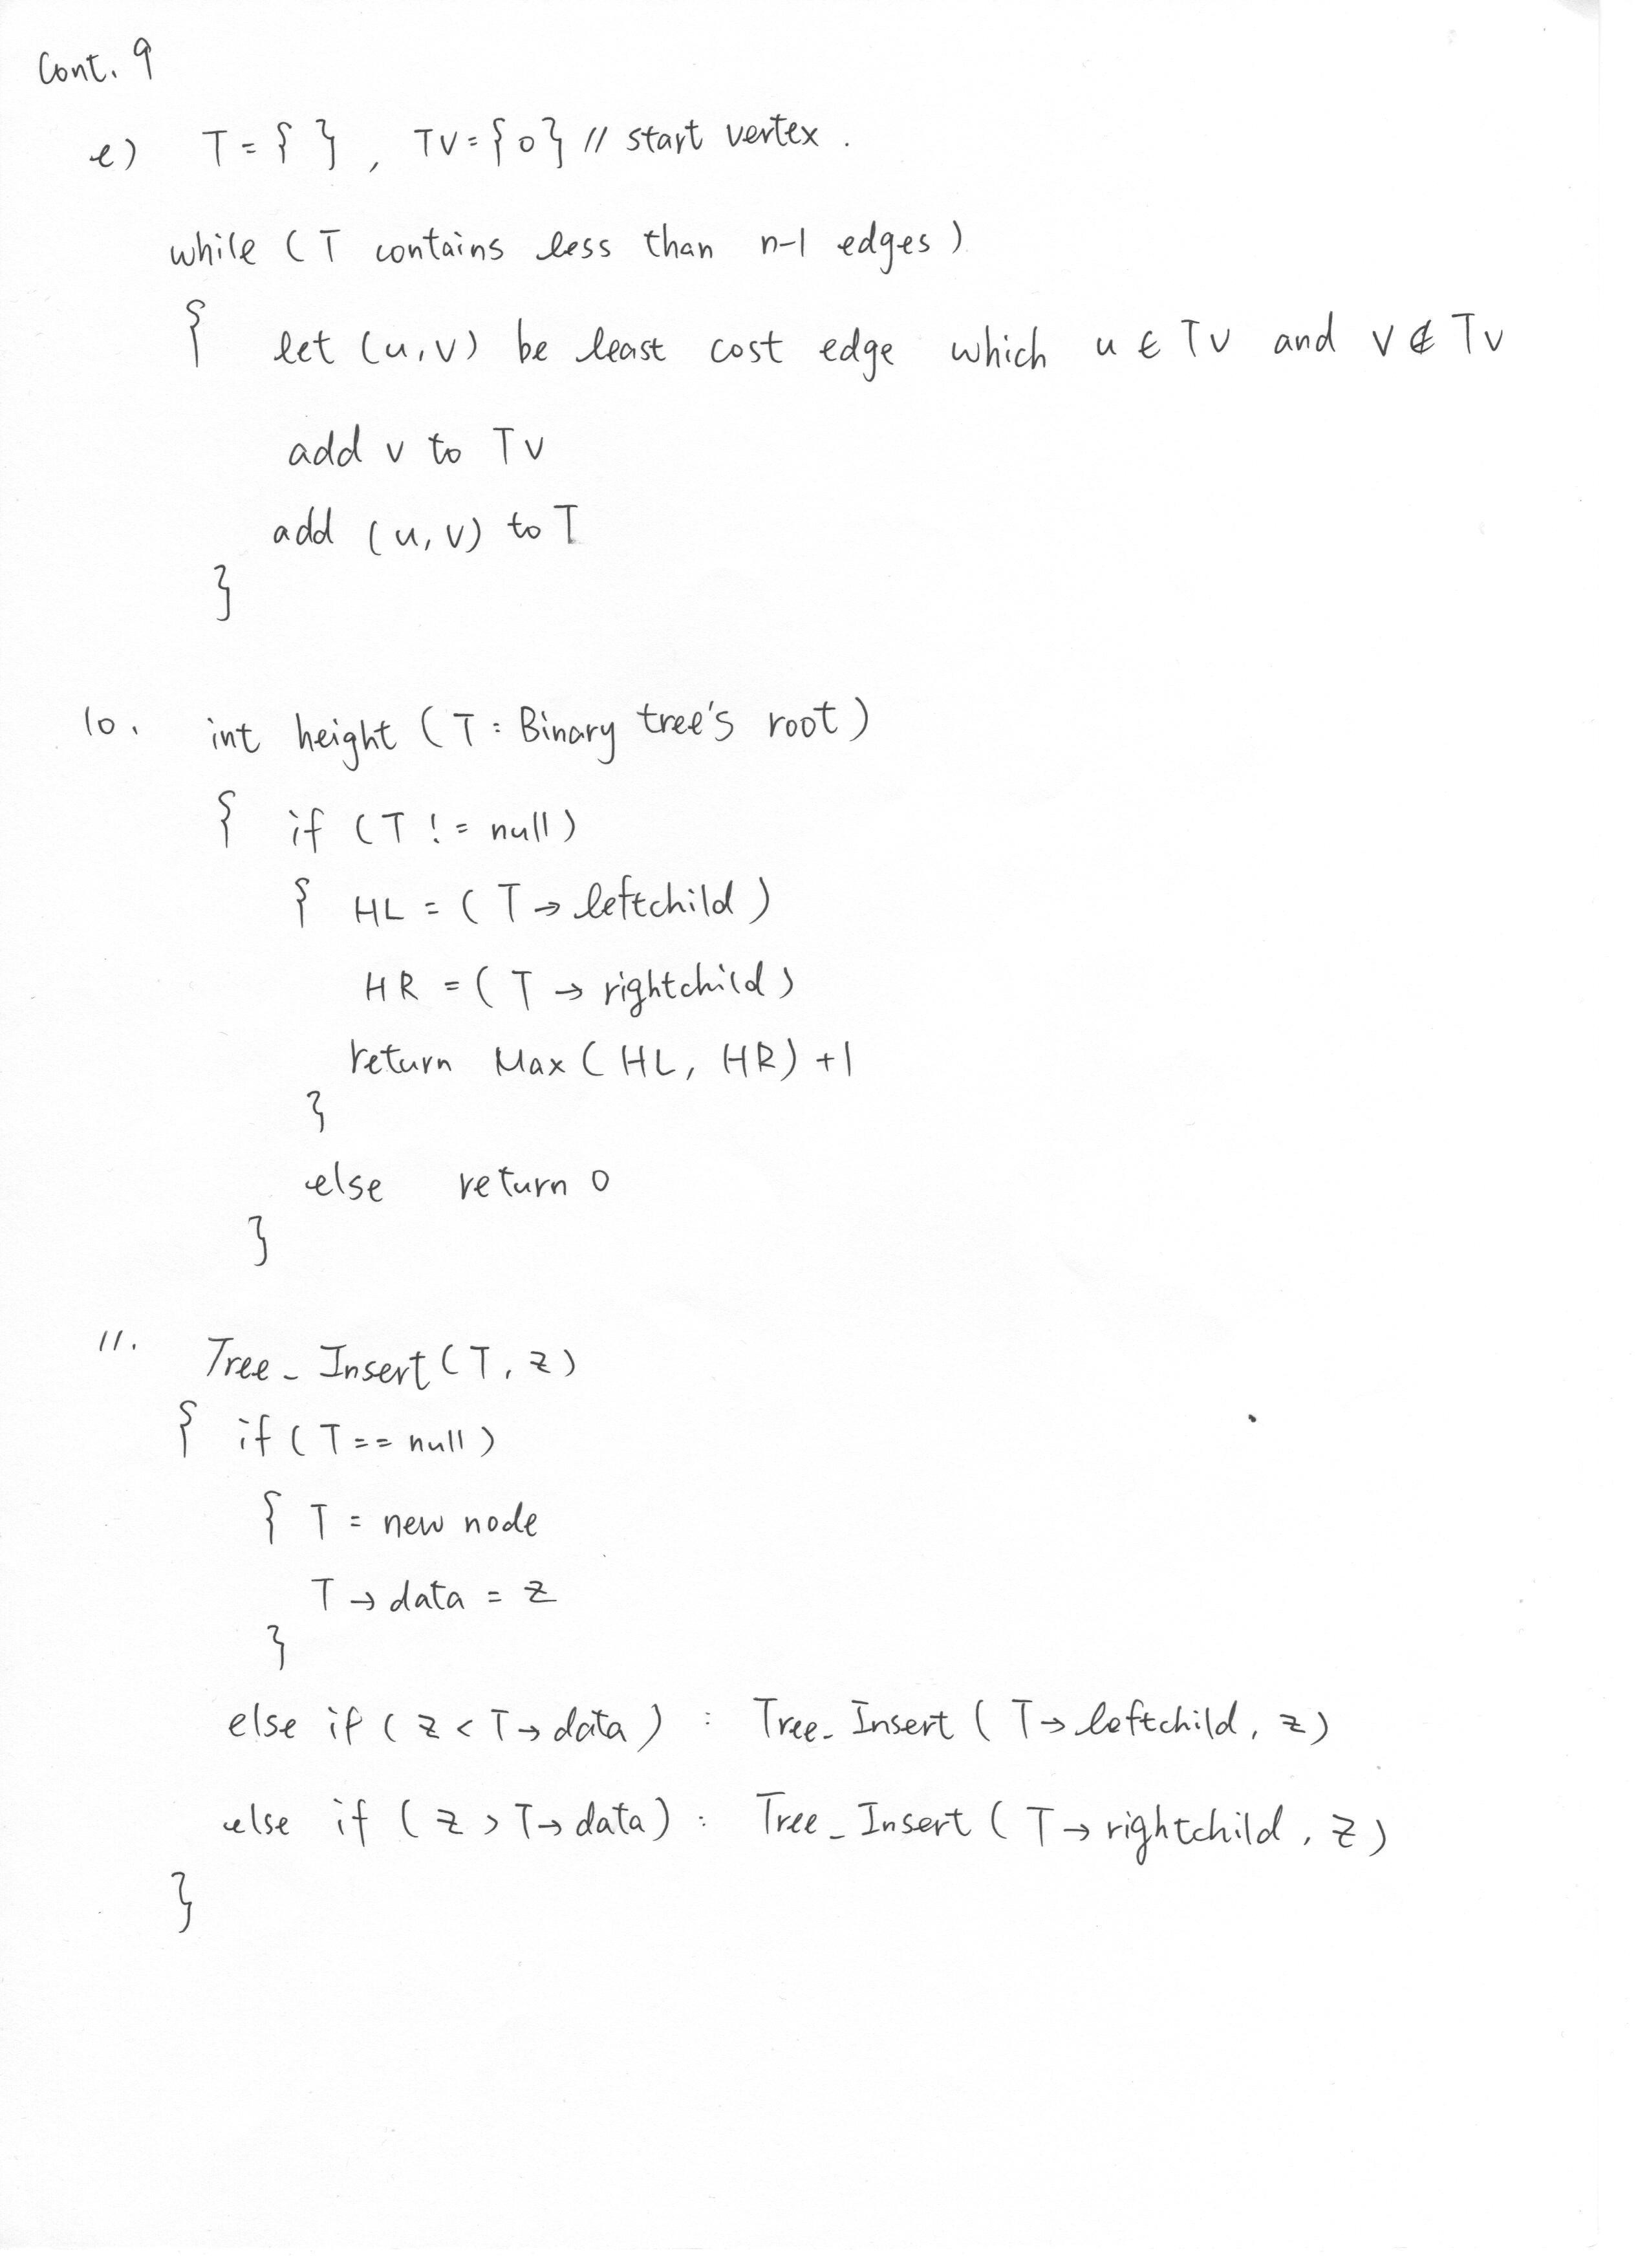 Cont. 9
e) T = { } , TV = {0} // start vertex .
while (T contains less than n-1 edges)
{ let (u,v) be least cost edge which u ∈ TV and v ∉ TV
add v to TV
add (u,v) to T
}
10. int height (T : Binary tree's root)
{ if (T != null)
{ HL = (T → leftchild)
HR = (T → rightchild)
return Max (HL, HR) +1
}
else return 0
}
11. Tree_Insert (T, z)
{ if (T == null)
{ T = new node
T → data = z
}
else if (z < T → data) : Tree_Insert (T → leftchild, z)
else if (z > T → data) : Tree_Insert (T → rightchild, z)
}